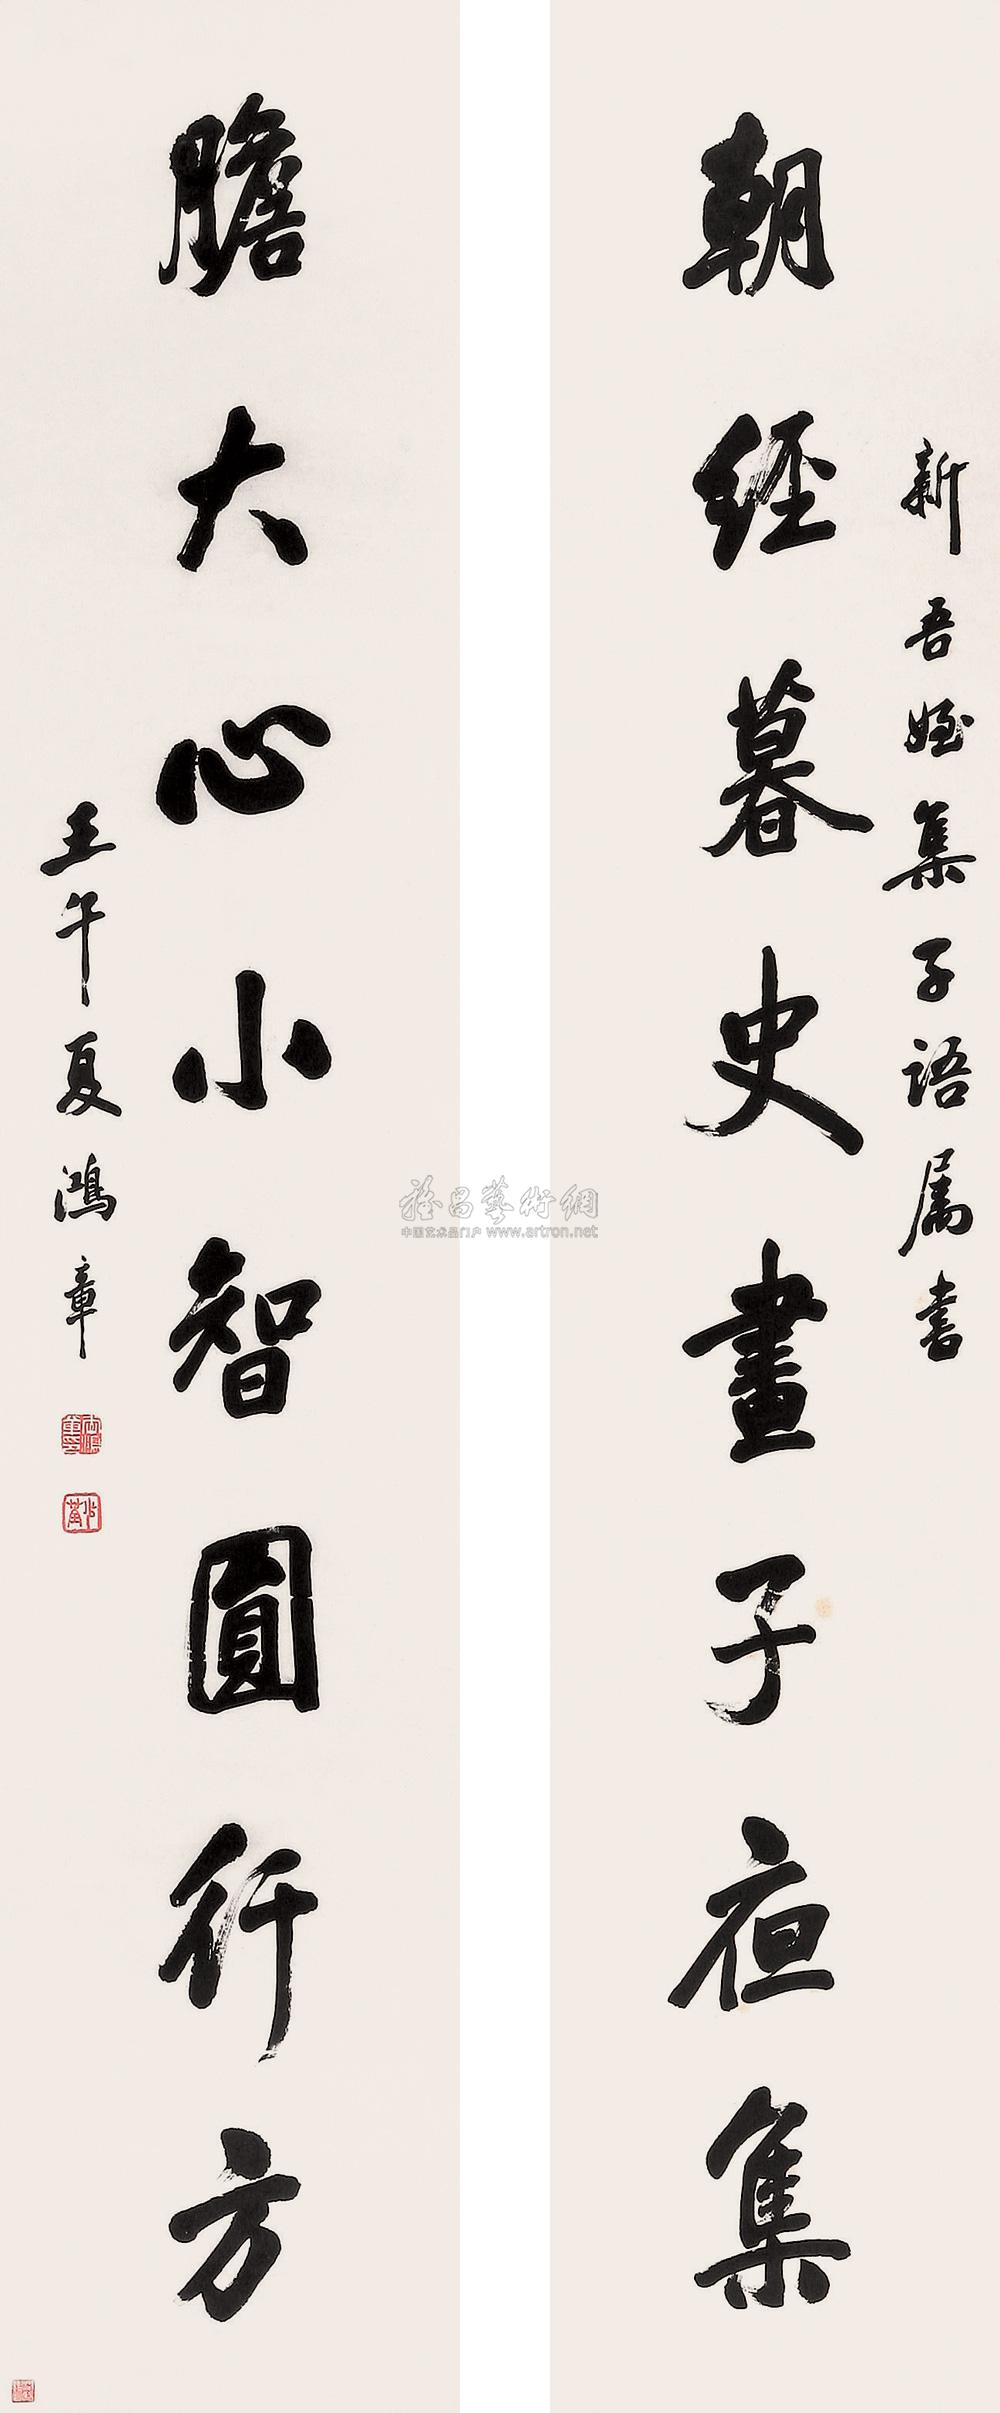 新吾姪集子語属書
朝經暮史晝子夜集
膽大心小智圓行方
壬午夏鴻章
雅昌藝術網
中国艺术品门户 www.artron.net